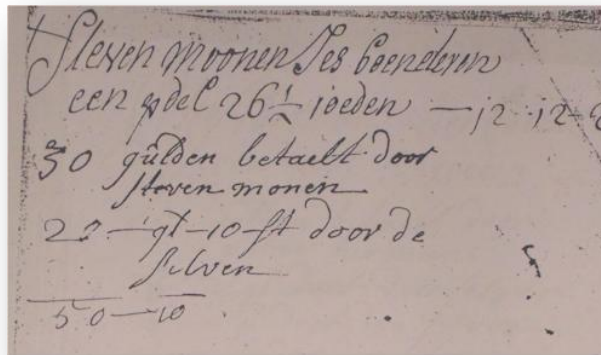 Steven moonen Ses boenderen
een ½ del 26 ½ roeden — 12-12-
30 gulden betaelt door
steven monen
20 — gl — 10 — st door de
selven
50 — 10